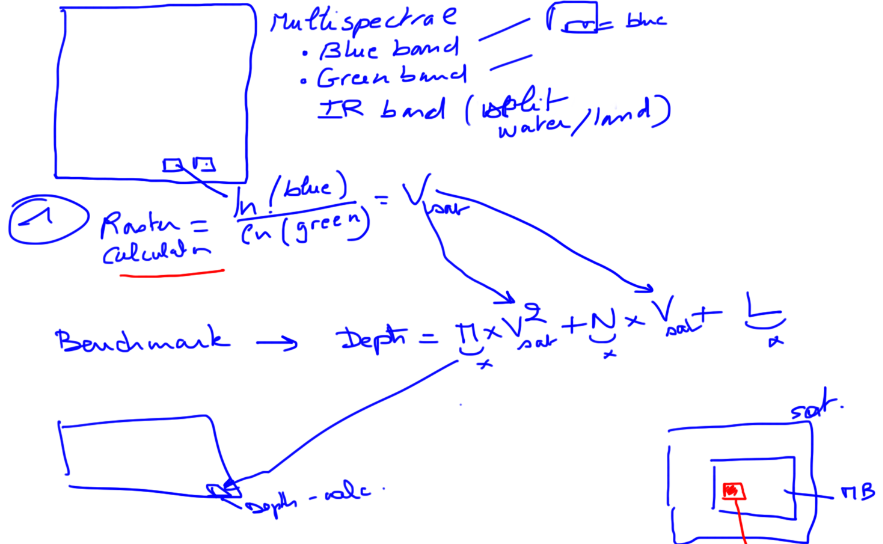 Multispectrae
• Blue band
= blue
• Green band
IR band (split
water/land)
1
Raster Calculator = ln(blue) / ln(green) = V sat
Benchmark → Depth = M x V² sat + N x V sat + L
x x x
Depth-calc.
sat.
MB